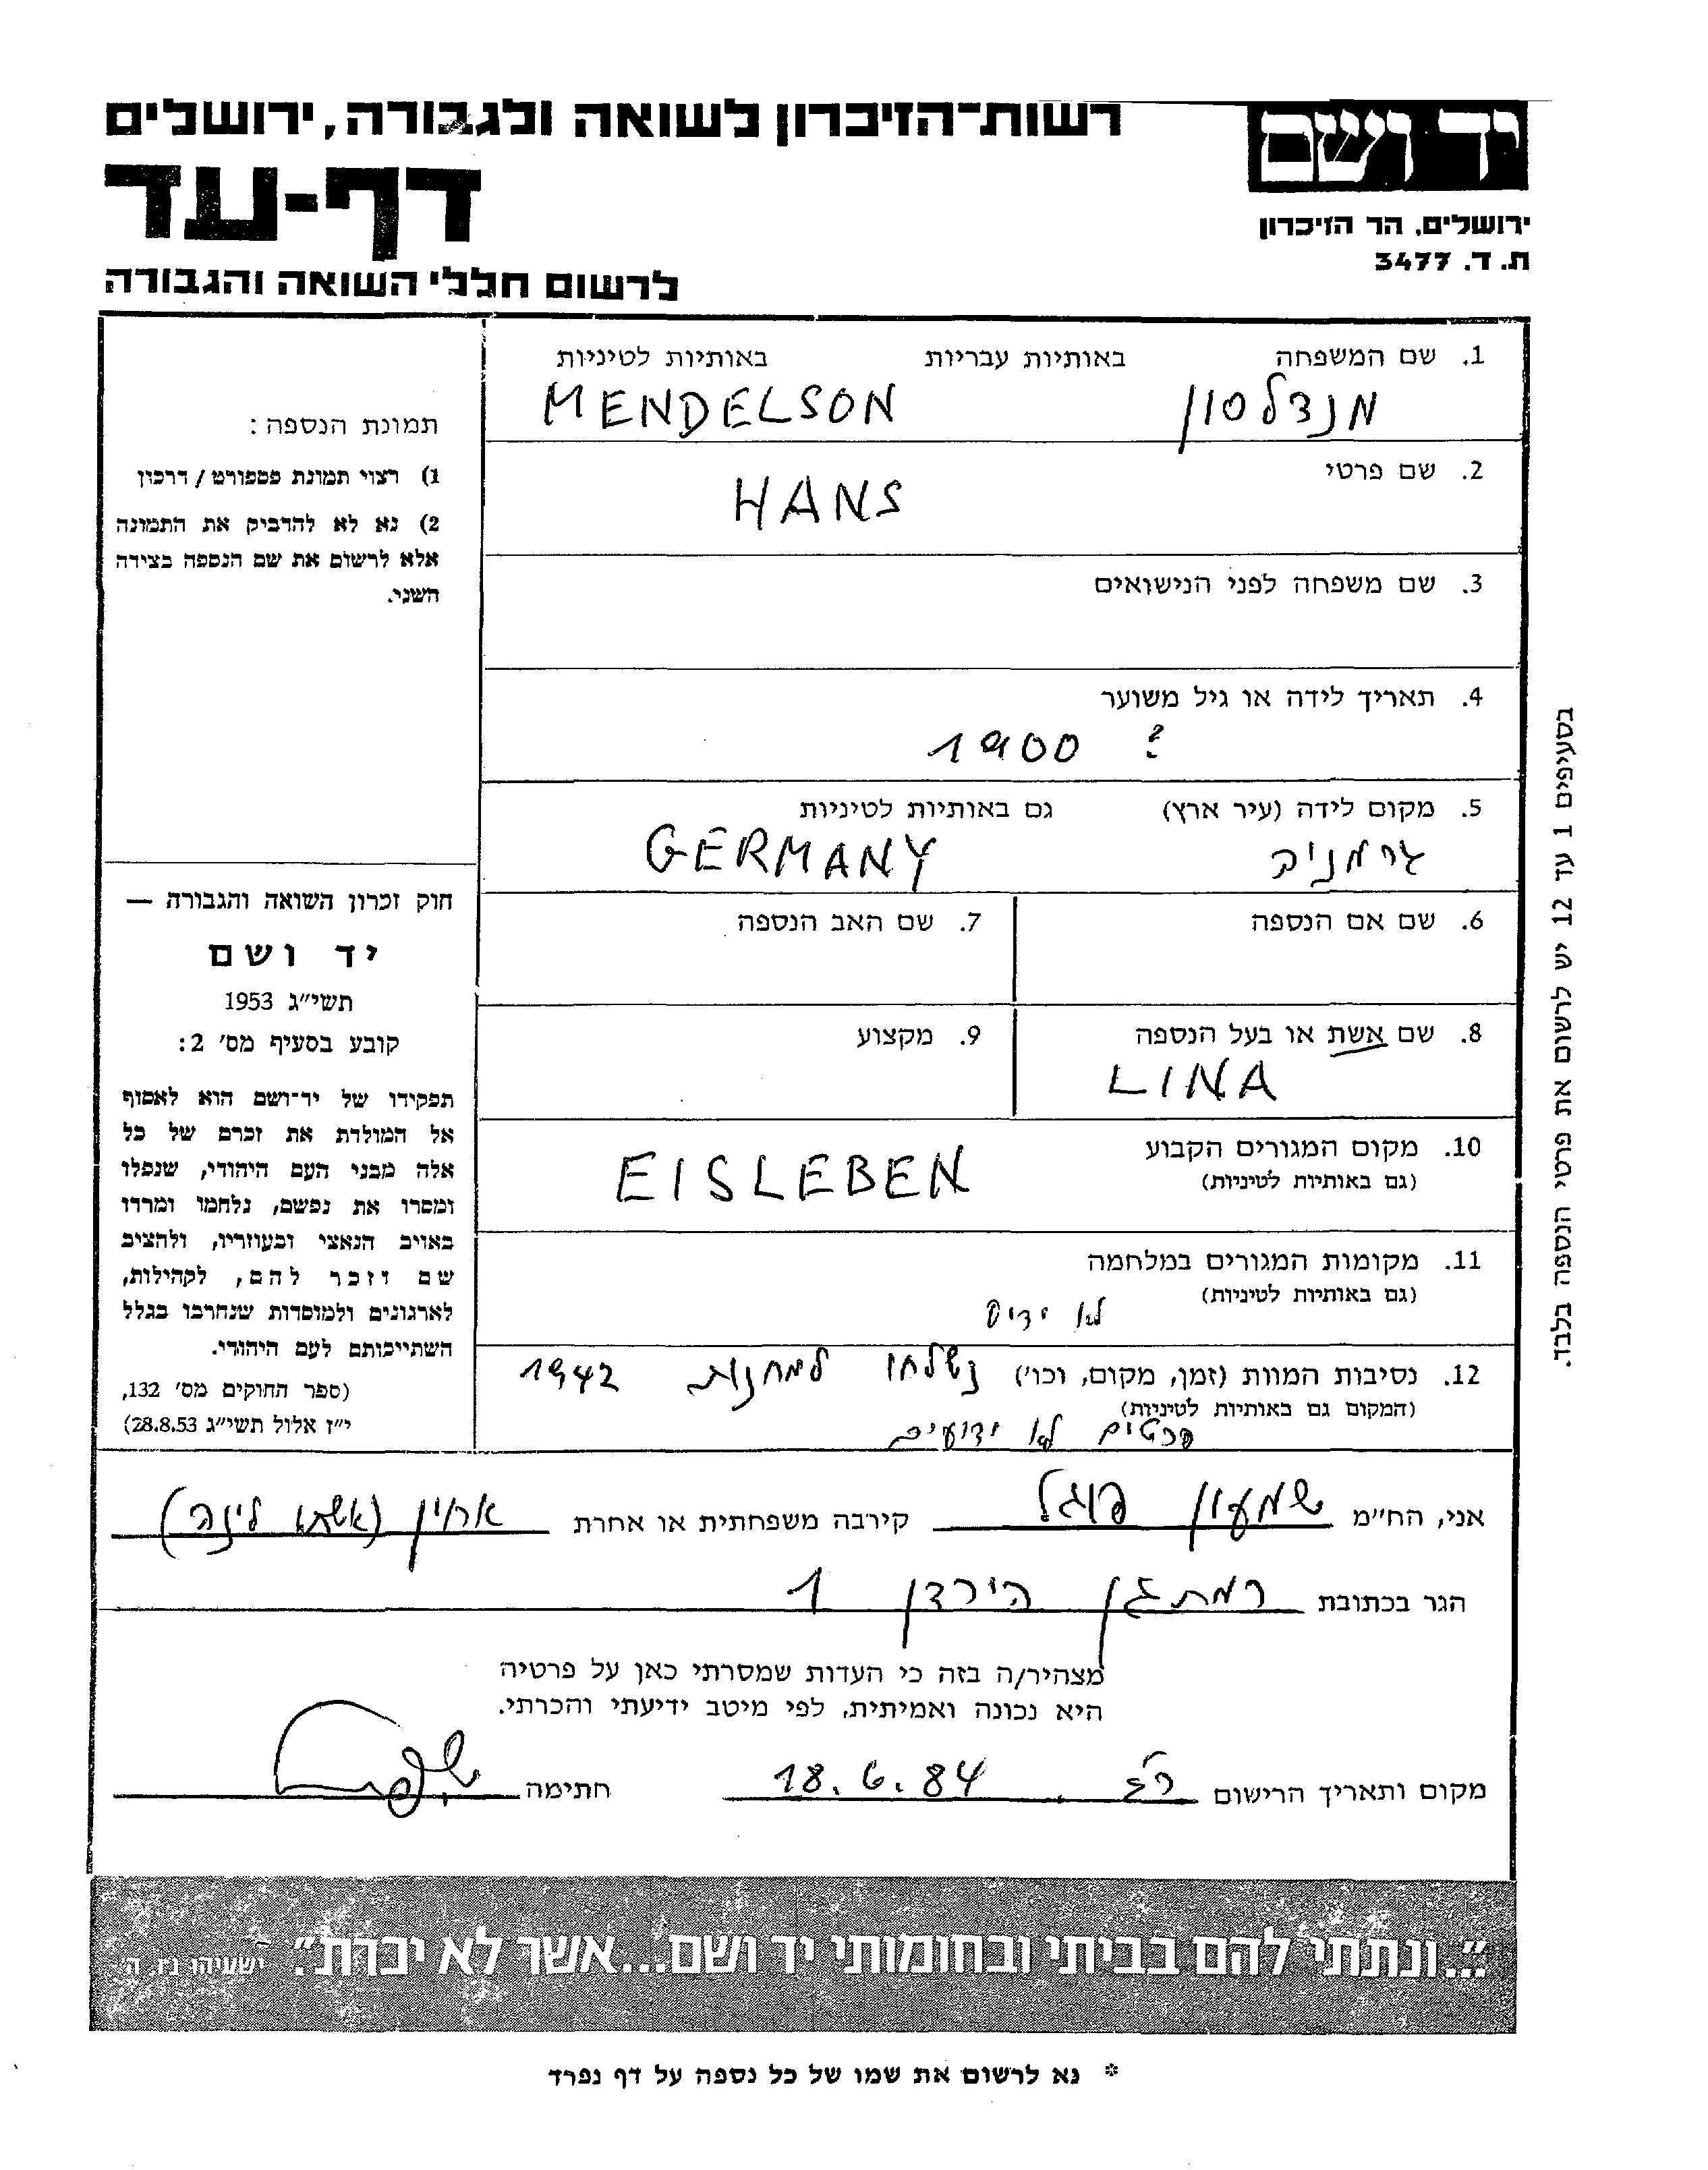 רשות-הזיכרון לשואה ולגבורה, ירושלים
יד ושם
דף-עד
ירושלים, הר הזיכרון
ת. ד. 3477
לרשום חללי השואה והגבורה
1. שם המשפחה באותיות עבריות באותיות לטיניות
מנדלסון MENDELSON
2. שם פרטי
HANS
3. שם משפחה לפני הנישואים
4. תאריך לידה או גיל משוער
1900 ?
5. מקום לידה (עיר ארץ) גם באותיות לטיניות
גרמניה GERMANY
6. שם אם הנספה 7. שם האב הנספה
8. שם אשת או בעל הנספה 9. מקצוע
LINA
10. מקום המגורים הקבוע
(גם באותיות לטיניות)
EISLEBEN
11. מקומות המגורים במלחמה
(גם באותיות לטיניות)
לא ידוע
12. נסיבות המוות (זמן, מקום, וכו') נשלחו למחנות 1942
(המקום גם באותיות לטיניות)
פרטים לא ידועים
תמונת הנספה:
1) רצוי תמונת פספורט / דרכון
2) נא לא להדביק את התמונה
אלא לרשום את שם הנספה בצידה
השני.
חוק זכרון השואה והגבורה —
יד ושם
תשי"ג 1953
קובע בסעיף מס' 2:
תפקידו של יד-ושם הוא לאסוף
אל המולדת את זכרם של כל
אלה מבני העם היהודי, שנפלו
ומסרו את נפשם, נלחמו ומרדו
באויב הנאצי ובעוזריו, ולהציב
שם וזכר להם, לקהילות,
לארגונים ולמוסדות שנחרבו בגלל
השתייכותם לעם היהודי.
(ספר החוקים מס' 132,
י"ז אלול תשי"ג 28.8.53)
בסעיפים 1 עד 12 יש לרשום את פרטי הנספה בלבד.
אני, הח"מ שמעון פוגל קירבה משפחתית או אחרת אחיין (אשתו לינה)
הגר בכתובת רמת גן הירדן 1
מצהיר/ה בזה כי העדות שמסרתי כאן על פרטיה
היא נכונה ואמיתית, לפי מיטב ידיעתי והכרתי.
מקום ותאריך הרישום ר"ג 18.6.84 חתימה
"...ונתתי להם בביתי ובחומותי יד ושם...אשר לא יכרת". ישעיהו נו. ה
* נא לרשום את שמו של כל נספה על דף נפרד